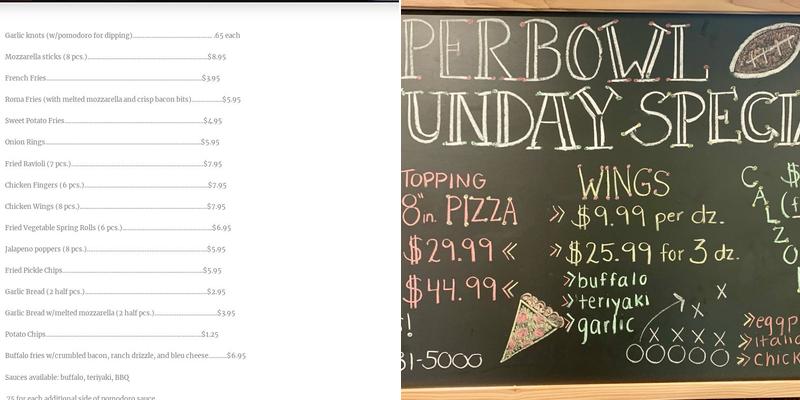 Garlic knots (w/pomodoro for dipping)..................................... .65 each
Mozzarella sticks (8 pcs.)......................................................$8.95
French Fries..........................................................................$3.95
Roma Fries (with melted mozzarella and crisp bacon bits)..............$5.95
Sweet Potato Fries................................................................$4.95
Onion Rings.........................................................................$5.95
Fried Ravioli (7 pcs.)..............................................................$7.95
Chicken Fingers (6 pcs.)........................................................$7.95
Chicken Wings (8 pcs.)..........................................................$7.95
Fried Vegetable Spring Rolls (6 pc.)..........................................$6.95
Jalapeno poppers (8 pc.).........................................................$5.95
Fried Pickle Chips..................................................................$5.95
Garlic Bread (2 half pc.)..........................................................$2.95
Garlic Bread w/melted mozzarella (2 half pc.).............................$3.95
Potato Chips.........................................................................$1.25
Buffalo fries w/crumbled bacon, ranch drizzle, and bleu cheese.........$6.95
Sauces available: buffalo, teriyaki, BBQ
.75 for each additional side of pomodoro sauce
PERBOWL
UNDAY SPECI
TOPPING
8"in. PIZZA
$29.99 <<
$44.99 <<
!
31-5000
WINGS
>> $9.99 per dz.
>> $25.99 for 3 dz.
> buffalo
> teriyaki
> garlic
x
x
x x x x
O O O O O
CALZO
$
(f
>> eggp
>> italia
>> chick